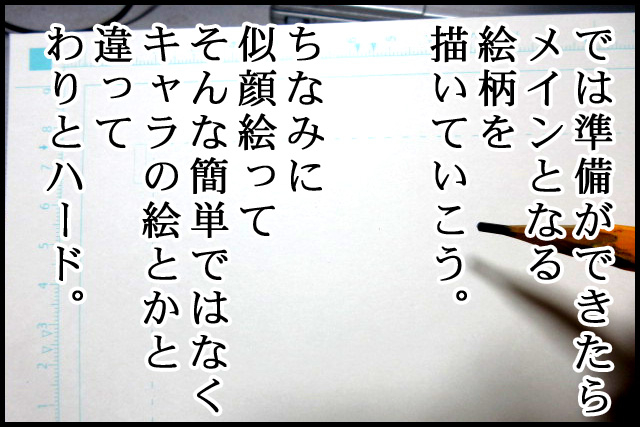 では準備ができたら
メインとなる
絵柄を
描いていこう。
ちなみに
似顔絵って
そんな簡単ではなく
キャラの絵とかと
違って
わりとハード。